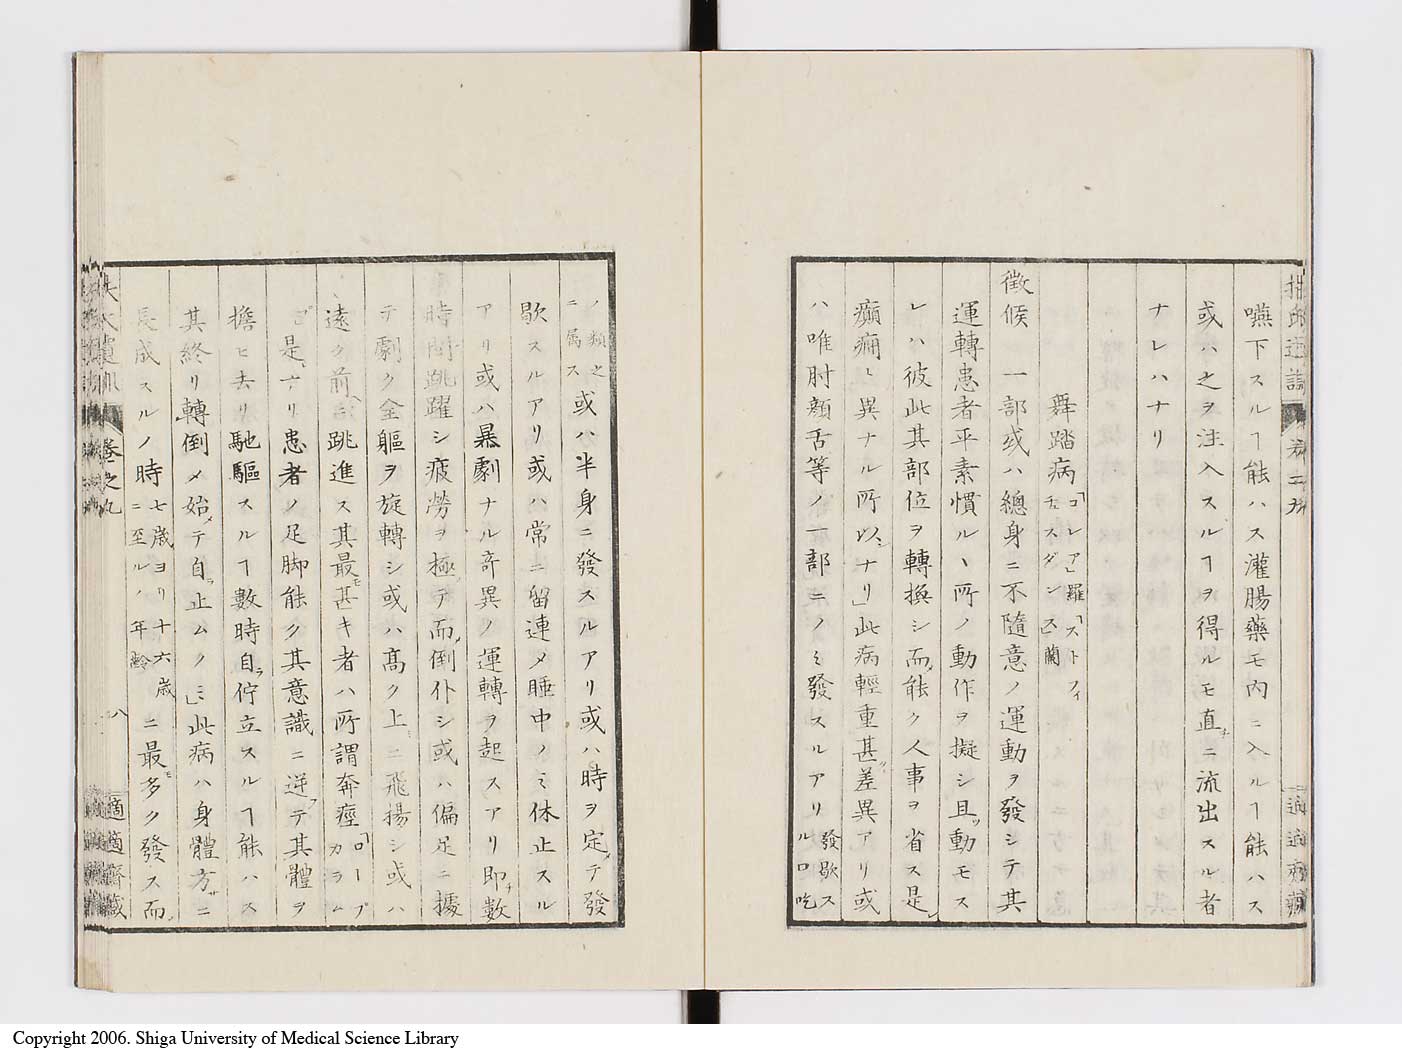 嚥下スルヿ能ハス灌腸藥モ內ニ入ルヿ能ハス
或ハ之ヲ注入スルヿヲ得ルモ直チニ流出スル者
ナレハナリ
舞踏病「コレア」羅「ストフィ
チェスダンス」蘭
徵候 一部或ハ總身ニ不隨意ノ運動ヲ發シテ其
運轉患者平素慣ルヽ所ノ動作ヲ擬シ且ツ動モス
レハ彼此其部位ヲ轉換シ而メ能ク人事ヲ省ス是レ
癲癇ト異ナル所以ンナリ」此病輕重甚タ差異アリ或
ハ唯肘顏舌等ノ一部ニノミ發スルアリ發歇ス
ル口吃
ノ類之
ニ屬ス
或ハ半身ニ發スルアリ或ハ時ヲ定メテ發
歇スルアリ或ハ常ニ留連メ睡中ノミ休止スル
アリ或ハ暴劇ナル奇異ノ運轉ヲ起スアリ即チ數
時間跳躍シ疲勞ヲ極メテ而メ倒仆シ或ハ偏足ニ據
テ劇ク全軀ヲ旋轉シ或ハ高ク上ミニ飛揚シ或ハ
遠ク前ヘ跳進ス其最モ甚キ者ハ所謂奔痙「ロープ
カラム
プ」是ナリ患者ノ足脚能ク其意識ニ逆フテ其體ヲ
擔ヒ去リ馳驅スルヿ數時自ラ佇立スルヿ能ハス
其終リ轉倒メ始メテ自ラ止ムノミ」此病ハ身體方サニ
長成スルノ時七歲ヨリ十六歲
ニ至ルノ年齡
ニ最モ多ク發ス而メ
扶氏經驗遺訓
卷之九
八
適適齋藏